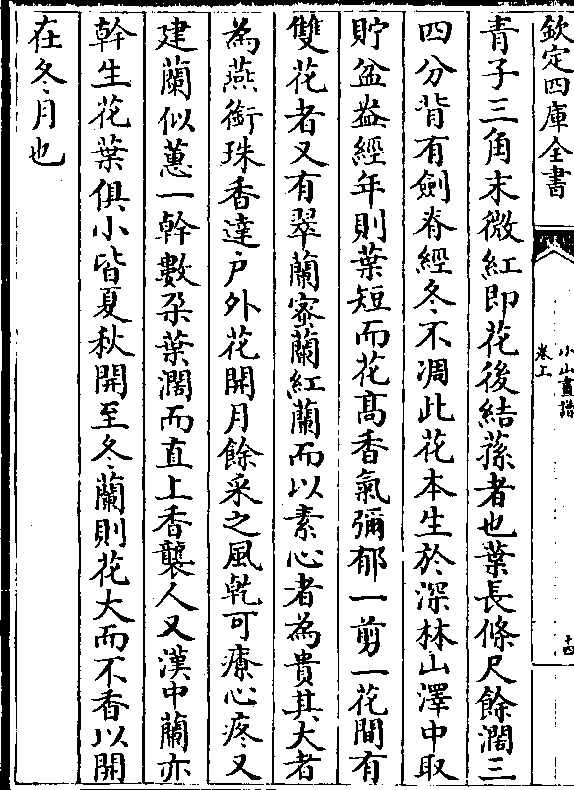 欽定四庫全書
小山畫譜
卷上
十四
青子三角末微紅即花後結蓀者也葉長條尺餘濶三
四分背有劍脊經冬不凋此花本生於深林山澤中取
貯盆盎經年則葉短而花髙香氣彌郁一剪一花間有
雙花者又有翠蘭宻蘭紅蘭而以素心者為貴其大者
為燕銜珠香達戸外花開月餘采之風乾可療心疼又
建蘭似蕙一幹數朶葉濶而直上香襲人又漢中蘭亦
幹生花葉俱小皆夏秋開至冬蘭則花大而不香以開
在冬月也